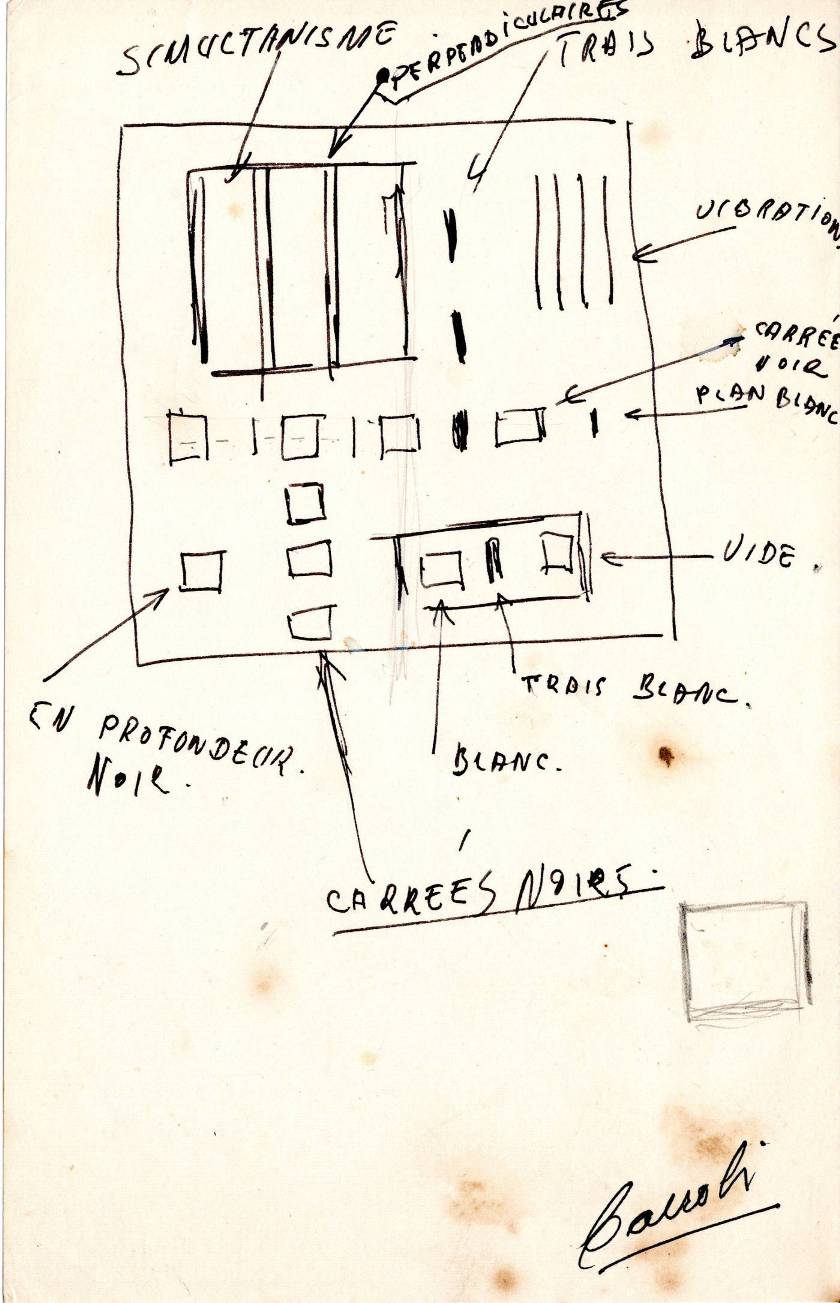 SIMULTANISME
PERPENDICULAIRES
TRAIS BLANCS
VIBRATION
CARRÉE
NOIR
PLAN BLANC
VIDE.
TRAIS BLANC.
EN PROFONDEUR.
NOIR.
BLANC.
CARREÉS NOIRS.